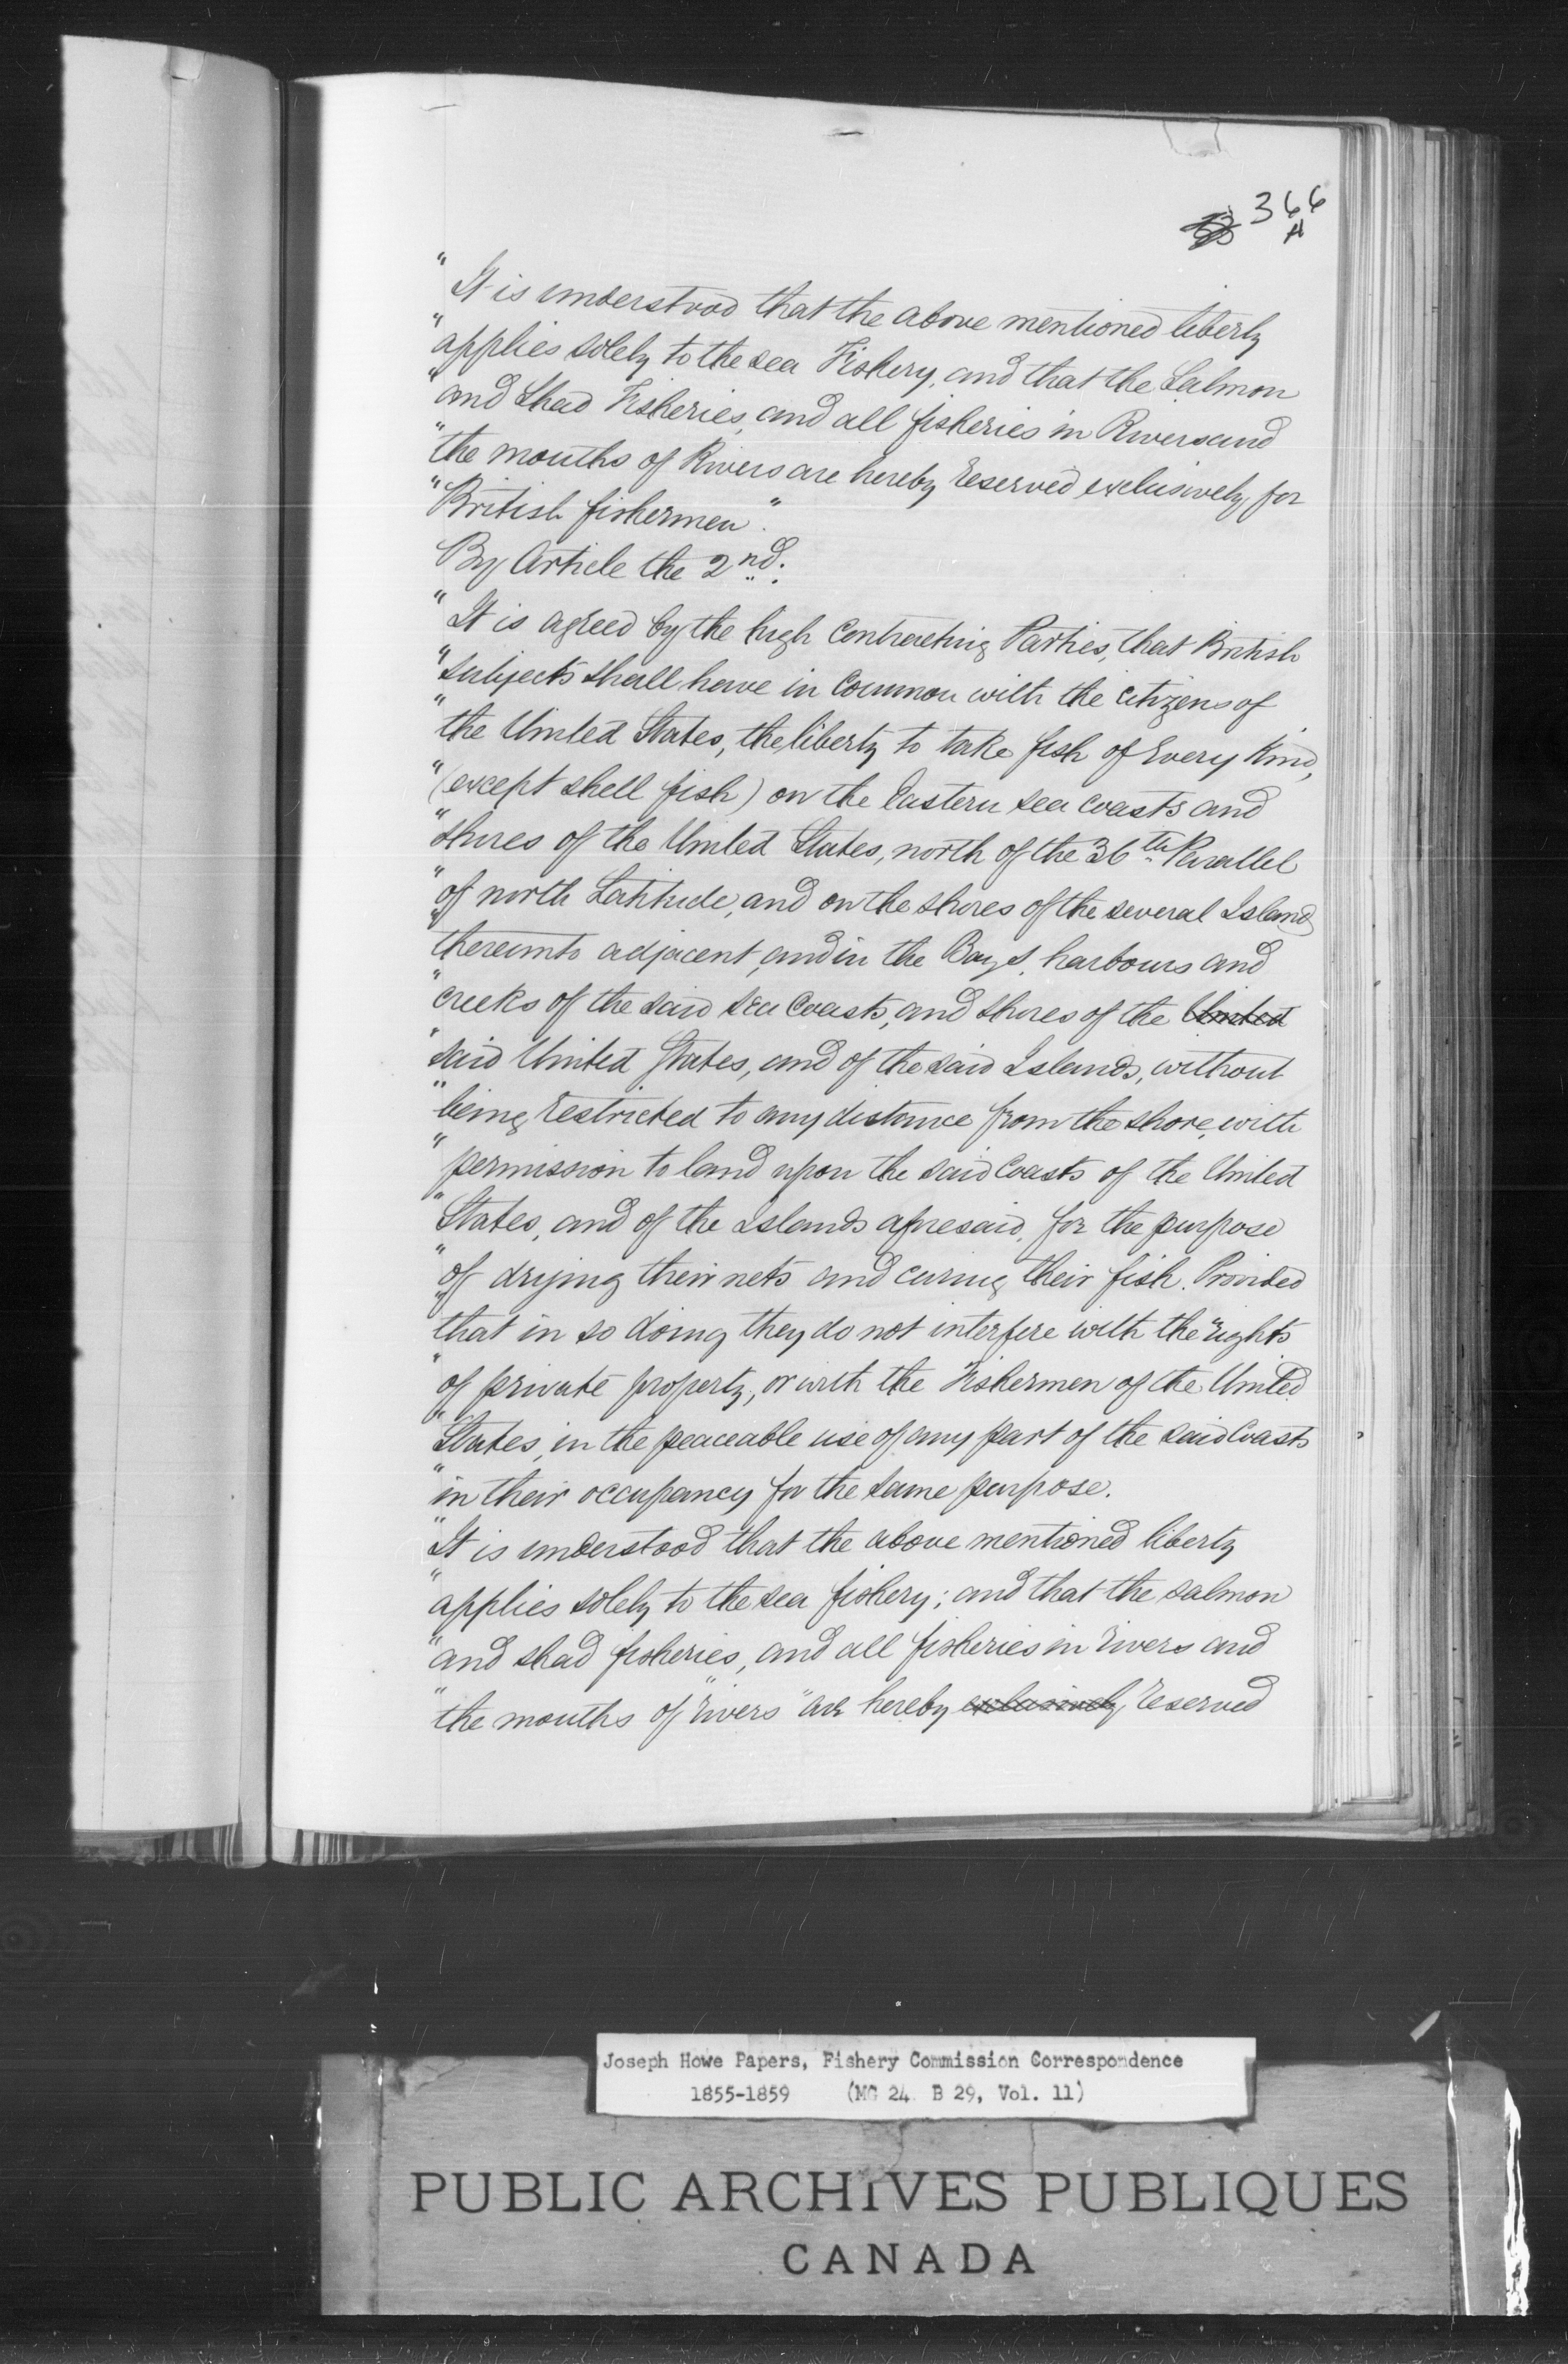 366
A
"It is understood that the above mentioned liberty
"applies solely to the sea Fishery, and that the Salmon
"and Shad Fisheries, and all fisheries in Rivers and
"the mouths of Rivers are hereby reserved exclusively, for
"British fishermen".
By Article the 2nd.
"It is agreed by the high Contracting Parties, that British
"subjects shall have in Common with the citizens of
"the United States, the liberty to take fish of Every Kind,
"(except shell fish) on the Eastern sea coasts and
"shores of the United States, north of the 36th Parallel
"of north Latitude, and on the shores of the several Islands
"thereunto adjacent, and in the Bays, harbours and
"creeks of the said sea Coasts, and shores of the United
"said United States, and of the said Islands, without
"being restricted to any distance from the shore, with
"permission to land upon the said Coasts of the United
"States, and of the Islands aforesaid, for the purpose
"of drying their nets and curing their fish. Provided
"that in so doing they do not interfere with the rights
"of private property, or with the Fishermen of the United
"States, in the peaceable use of any part of the said Coasts
"in their occupancy for the same purpose.
"It is understood that the above mentioned liberty
"applies solely to the sea fishery; and that the salmon
"and shad fisheries, and all fisheries in rivers and
"the mouths of "rivers" are hereby exclusively reserved
Joseph Howe Papers, Fishery Commission Correspondence
1855-1859 (MG 24 B 29, Vol. 11)
PUBLIC ARCHIVES PUBLIQUES
CANADA